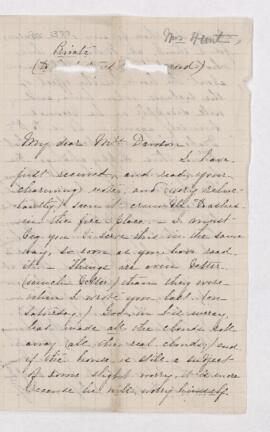 Mrs Hunt
Private
My dear Mrs Davison
I have
just received, and read your
charming note, and (very reluc-
tantly) seen it crumble to ashes
in the fire place. — I must
beg you to serve this in the same
way, so soon as you have read
it. — Things are even better
(much better) than they were
when I wrote you last (on
Saturday.) God in his mercy,
has made all the clouds roll
away (all the real clouds) and
if the house is still a subject
of some slight worry, it is more
because he will worry himself